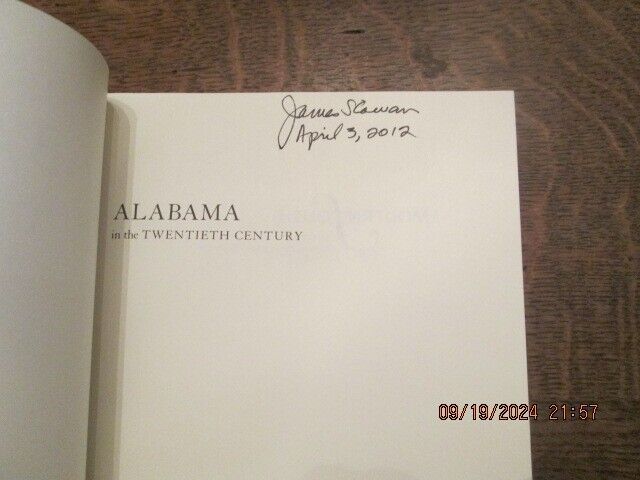 James S Cowan
April 3, 2012
ALABAMA
in the TWENTIETH CENTURY
09/19/2024 21:57